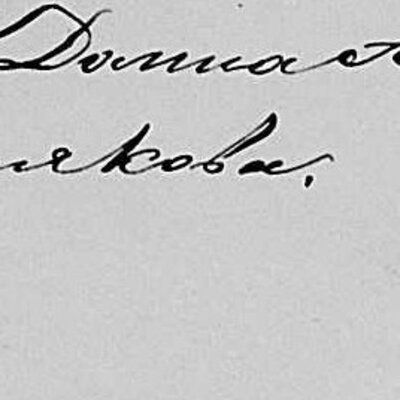 Домна
якова.